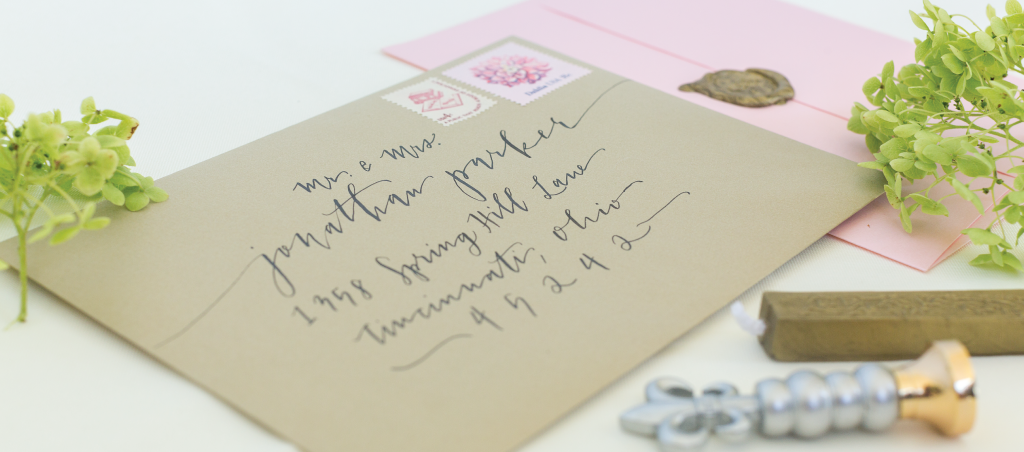 mr. & mrs.
jonathan parker
1398 Spring Hill Lane
Cincinnati, Ohio
45242